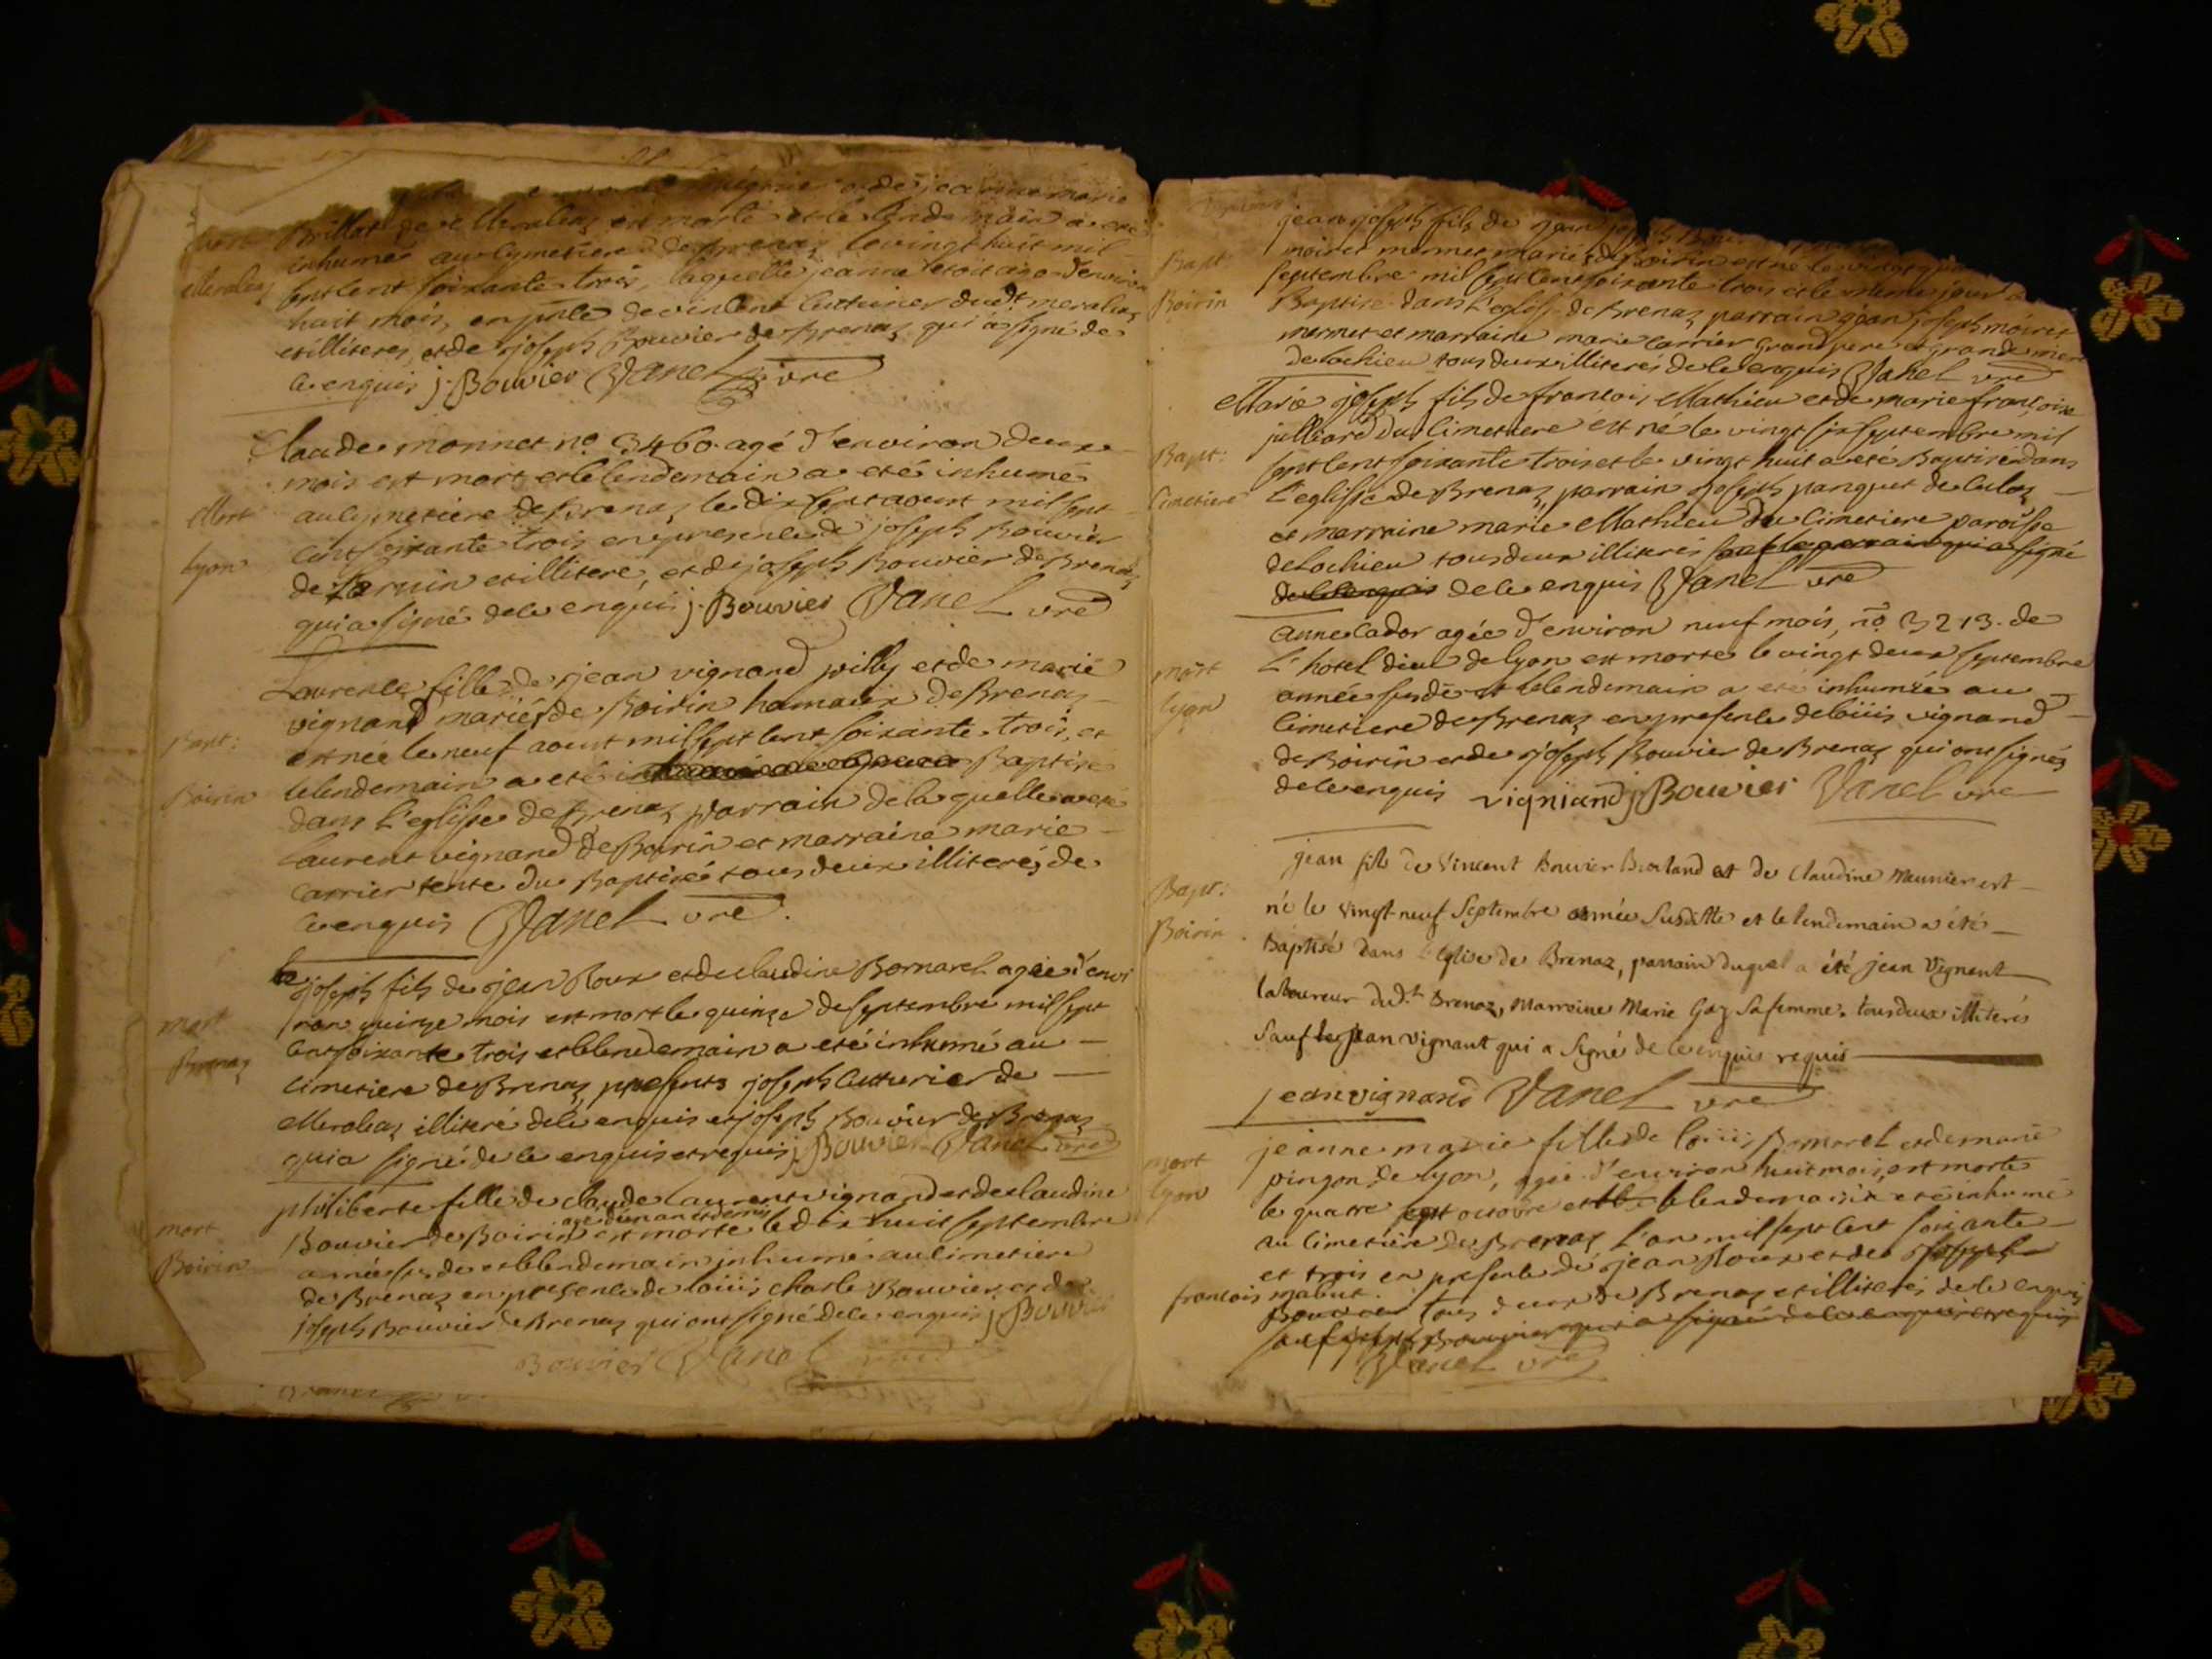 et de jeanne marie
Brillat de Meraleaz est morte et le lendemain a eté
inhumée au cymetiere de Brenaz le vingt huit mil
sept cent soixante trois, laquelle jeanne etoit agée d'environ
huit mois, en pnce de vincent Cutturier dudt meraleaz
et illiteré, et de joseph Bouvier de Brenaz qui a signé de
ce enquis j. Bouvier Vanel vre
Mort
Meraleaz
Claude monnet no. 3460. agé d'environ deux
mois est mort et le lendemain a eté inhumé
au cymetiere de Brenaz le dix sept aoust mil sept
cent soixante trois en presence de joseph Bouvier
de et illiteré, et de joseph Bouvier de Brenaz
qui a signé de ce enquis j. Bouvier Vanel vre
Mort
lyon
Laurence fille de jean vignand pilly et de marie
vignand mariés de Boirin hamaux de Brenaz
est née le neuf aoust mil sept cent soixante trois, et
le lendemain a eté Baptisée
dans l'eglisse de Brenaz parrain de laquelle a eté
laurent vignand de Boirin et marraine marie
Carrier tente du Baptisé tous deux illiterés de
ce enquis Vanel vre.
Bapt:
Boirin
joseph fils de jean Roux et de claudine Bornarel agée d'envi
ron quinze mois est mort le quinze de septembre mil sept
cent soixante trois et le lendemain a eté inhumé au
cimetiere de Brenaz, presents joseph Cutturier de
Meraleaz illiteré de ce enquis et joseph Bouvier de Brenaz
qui a signé de ce enquis et requis j Bouvier Vanel vre
mort
Brenaz
philiberte fille de claude laurent vignand et de claudine
Bouvier de Boirin agé d'un an et demis est morte le dix huit septembre
année susde et le lendemain inhumée au cimetiere
de Brenaz en presence de loüis charle Bouvier et de
joseph Bouvier de Brenaz qui ont signé de ce enquis j Bouvier
Bouvier Vanel vre
mort
Boirin
jean joseph fils de jean joseph
moiret mermet mariés de Boirin est né le vingt
septembre mil sept cent soixante trois et le meme jour a
Baptisé dans l'eglisse de Brenaz parrain jean joseph moiret
mermet et marraine marie carrier grand pere et grande mere
de lochieu tous deux illiterés de ce enquis Vanel vre
Bapt:
Boirin
Marie joseph fils de francois Mathieu et de marie francoise
julliard du Cimetiere est né le vingt six septembre mil
sept cent soixante trois et le vingt huit a eté Baptisé dans
l'eglisse de Brenaz, parrain joseph panquet de culoz
et marraine marie Mathieu du Cimetiere paroisse
de lochieu tous deux illiterés sauf le parrain qui a signé
de ce enquis de ce enquis Vanel vre
Bapt:
Cimetiere
anne cador agée d'environ neuf mois, no 3213. de
l'hotel dieu de lyon est morte le vingt deux septembre
année susde et le lendemain a eté inhumée au
Cimetiere de Brenaz en presence de loüis vignand
de Boirin et de joseph Bouvier de Brenaz qui ont signés
de ce enquis vigniand j Bouvier Vanel vre
mort
lyon
jean fils de Vincent Bouvier Burland et de Claudine Meunier est
né le vingt-neuf Septembre année Susditte et le lendemain a été
Baptisé dans l'Eglise de Brenaz, parrain duquel a été jean Vignant
laboureur dud.t Brenaz, Marraine Marie Gaz Sa femme. tous deux illiterés
Sauf le jean vignant qui a signé de ce enquis requis
jean vignand Vanel vre
Bapt:
Boirin
jeanne marie fille de loüis Bornarel et de marie
pinzon de lyon, agée d'environ huit mois, est morte
le quatre octobre et le lendemain a eté inhumé
au cimetiere de Brenaz l'an mil sept cent soixante
et trois en presence de jean Roux et de joseph
francois mabut.
Bouvier tous deux de Brenaz et illiterés de ce enquis
sauf joseph Bouvier qui a signé de ce enquis et requis
Vanel vre
mort
lyon